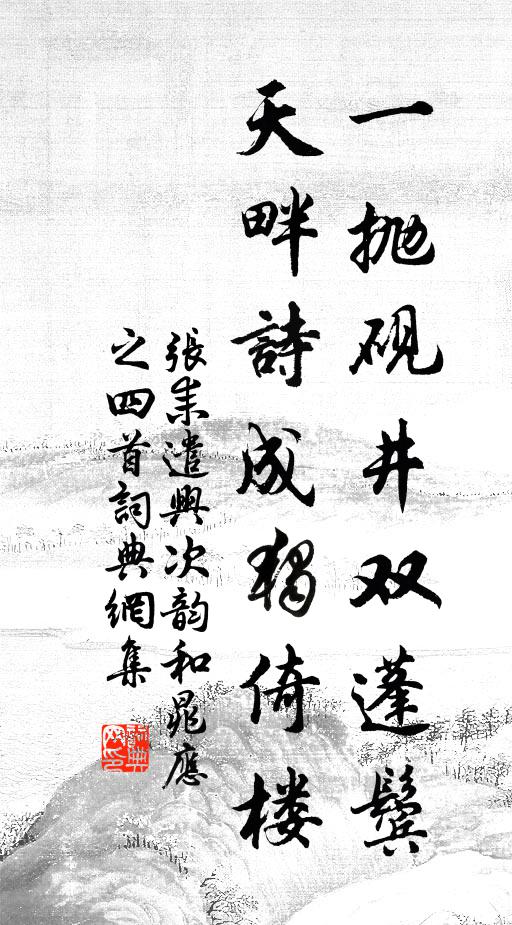 一抛砚井双蓬鬓
天畔詩成獨倚楼
張耒遣興次韵和晁應
之四首詞典網集